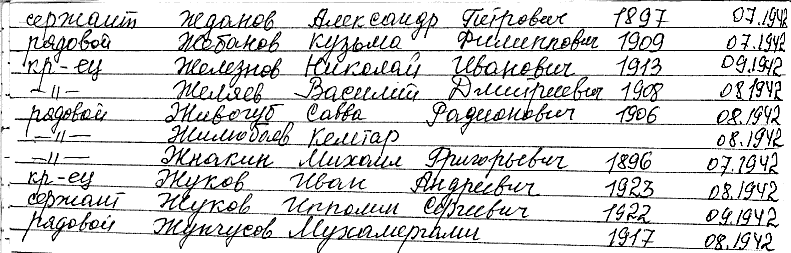 сержант Жданов Александр Петрович 1897 07.1942
рядовой Жебанов Кузьма Филиппович 1909 07.1942
кр-ец Железнов Николай Иванович 1913 09.1942
—"— Желяев Василий Дмитриевич 1908 08.1942
рядовой Живогуб Савва Радионович 1906 08.1942
—"— Жилюбаев Кемтар 08.1942
—"— Жнакин Михаил Григорьевич 1896 07.1942
кр-ец Жуков Иван Андреевич 1923 08.1942
сержант Жуков Ипполит Сергеевич 1922 09.1942
рядовой Жунчусов Мухамергали 1917 08.1942